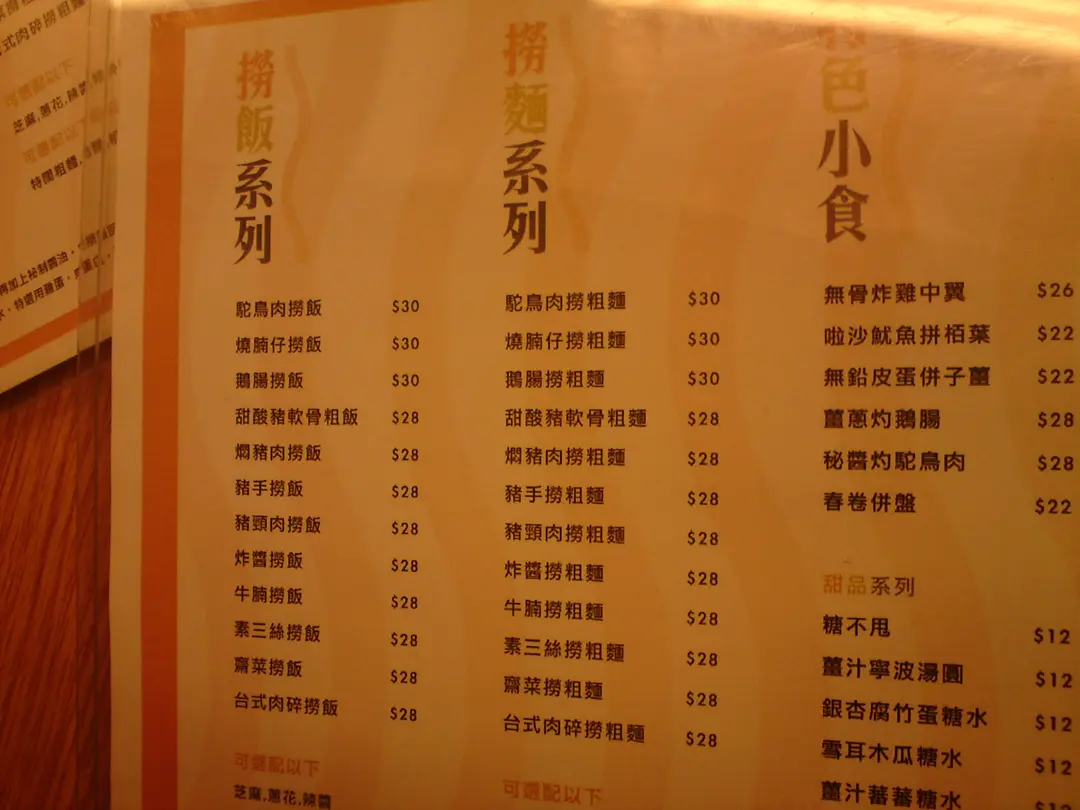 式肉碎撈粗麵
可選配以下
芝麻,蔥花,辣醬
特闊粗麵,
再加上秘制醬油,
水,特選用雞蛋,
撈飯系列
駝鳥肉撈飯 $30
燒腩仔撈飯 $30
鵝腸撈飯 $30
甜酸豬軟骨粗飯 $28
燜豬肉撈飯 $28
豬手撈飯 $28
豬頸肉撈飯 $28
炸醬撈飯 $28
牛腩撈飯 $28
素三絲撈飯 $28
齋菜撈飯 $28
台式肉碎撈飯 $28
可選配以下
芝麻,蔥花,辣醬
撈麵系列
駝鳥肉撈粗麵 $30
燒腩仔撈粗麵 $30
鵝腸撈粗麵 $30
甜酸豬軟骨粗麵 $28
燜豬肉撈粗麵 $28
豬手撈粗麵 $28
豬頸肉撈粗麵 $28
炸醬撈粗麵 $28
牛腩撈粗麵 $28
素三絲撈粗麵 $28
齋菜撈粗麵 $28
台式肉碎撈粗麵 $28
可選配以下
色小食
無骨炸雞中翼 $26
啦沙魷魚拼栢葉 $22
無鉛皮蛋併子薑 $22
薑蔥灼鵝腸 $28
秘醬灼駝鳥肉 $28
春卷併盤 $22
甜品系列
糖不甩 $12
薑汁寧波湯圓 $12
銀杏腐竹蛋糖水 $12
雪耳木瓜糖水 $12
薑汁蕃蕃糖水 $12